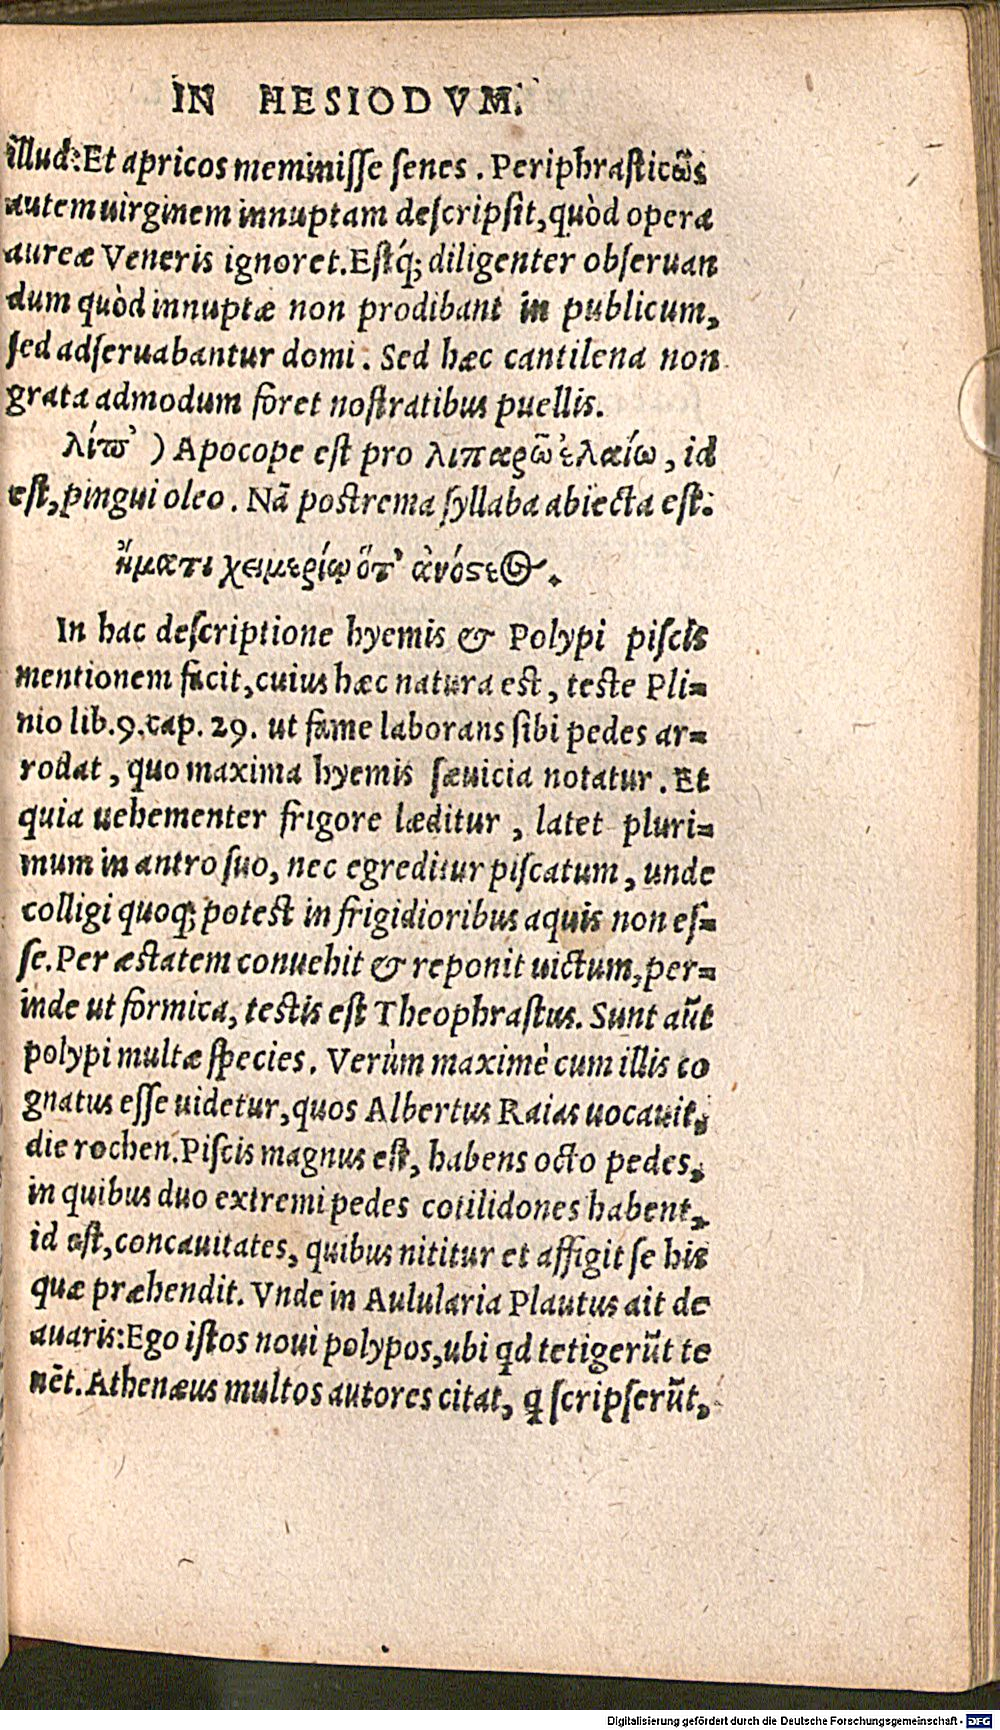 IN HESIODVM.
illud: Et apricos meminiſſe ſenes. Periphraſticῶs
autem uirginem innuptam deſcripſit, quòd opera
aureæ Veneris ignoret. Eſtq́; diligenter obſeruan
dum quòd innuptæ non prodibant in publicum,
ſed adſeruabantur domi. Sed hæc cantilena non
grata admodum foret noſtratibus puellis.
λίπ’ ) Apocope eſt pro λιπαρῶ ἐλαίω, id
eſt, pingui oleo. Nã poſtrema ſyllaba abiecta eſt:
ἤματι χειμερίῳ ὅτ’ ἀνόστεος.
In hac deſcriptione hyemis & Polypi piſcis
mentionem facit, cuius hæc natura eſt, teſte Pli=
nio lib.9.cap. 29. ut fame laborans ſibi pedes ar=
rodat, quo maxima hyemis ſæuicia notatur. Et
quia uehementer frigore læditur, latet pluri=
mum in antro ſuo, nec egreditur piſcatum, unde
colligi quoq; poteſt in frigidioribus aquis non eſ=
ſe. Per æſtatem conuehit & reponit uictum, per=
inde ut formica, teſtis eſt Theophraſtus. Sunt aūt
polypi multæ ſpecies. Verùm maximè cum illis co
gnatus eſſe uidetur, quos Albertus Raias uocauit,
die rochen. Piſcis magnus eſt, habens octo pedes,
in quibus duo extremi pedes cotilidones habent,
id eſt, concauitates, quibus nititur et affigit ſe his
quæ præhendit. Vnde in Aulularia Plautus ait de
auaris: Ego iſtos noui polypos, ubi qd tetigerūt te
nēt. Athenæus multos autores citat, q ſcripſerūt,
Digitalisierung gefördert durch die Deutsche Forschungsgemeinschaft - DFG